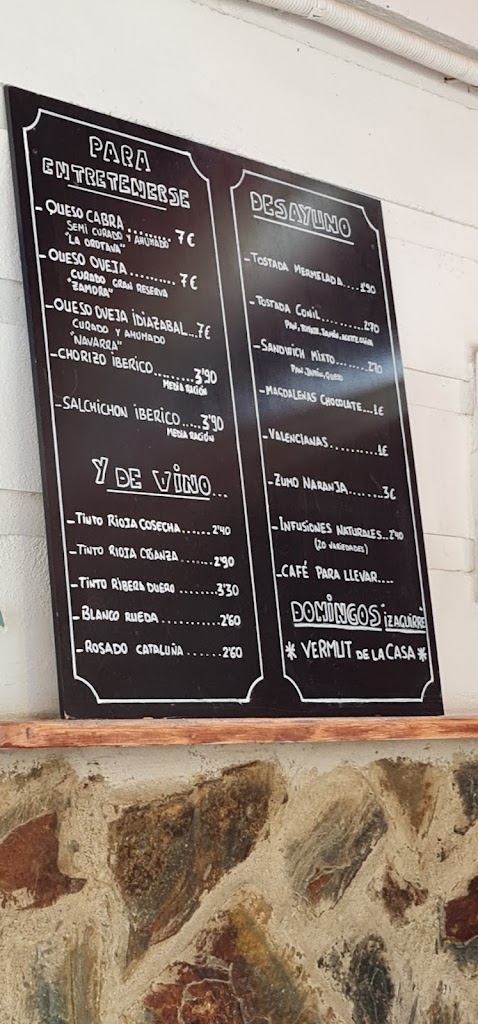 PARA
ENTRETENERSE
- QUESO CABRA ......... 7€
SEMI CURADO Y AHUMADO
"LA OROTAVA"
- QUESO OVEJA .......... 7€
CURADO GRAN RESERVA
"ZAMORA"
- QUESO OVEJA IDIAZABAL...7€
CURADO Y AHUMADO
"NAVARRA"
- CHORIZO IBERICO.........3'90
MEDIA RACIÓN
- SALCHICHON IBERICO.....3'90
MEDIA RACIÓN
Y DE VINO...
- TINTO RIOJA COSECHA...... 2'40
- TINTO RIOJA CRIANZA ...... 2'90
- TINTO RIBERA DUERO ....... 3'30
- BLANCO RUEDA ........... 2'60
- ROSADO CATALUÑA ...... 2'60
DESAYUNO
- TOSTADA MERMELADA....1'90
- TOSTADA CONIL..........2'70
- SANDWICH MIXTO.......2'70
PAN, JAMÓN, QUESO
- MAGDALENAS CHOCOLATE...1€
- VALENCIANAS..........1€
- ZUMO NARANJA.......3€
- INFUSIONES NATURALES..2'40
(20 VARIEDADES)
- CAFÉ PARA LLEVAR....
DOMINGOS "IZAGUIRRE"
* VERMUT DE LA CASA *